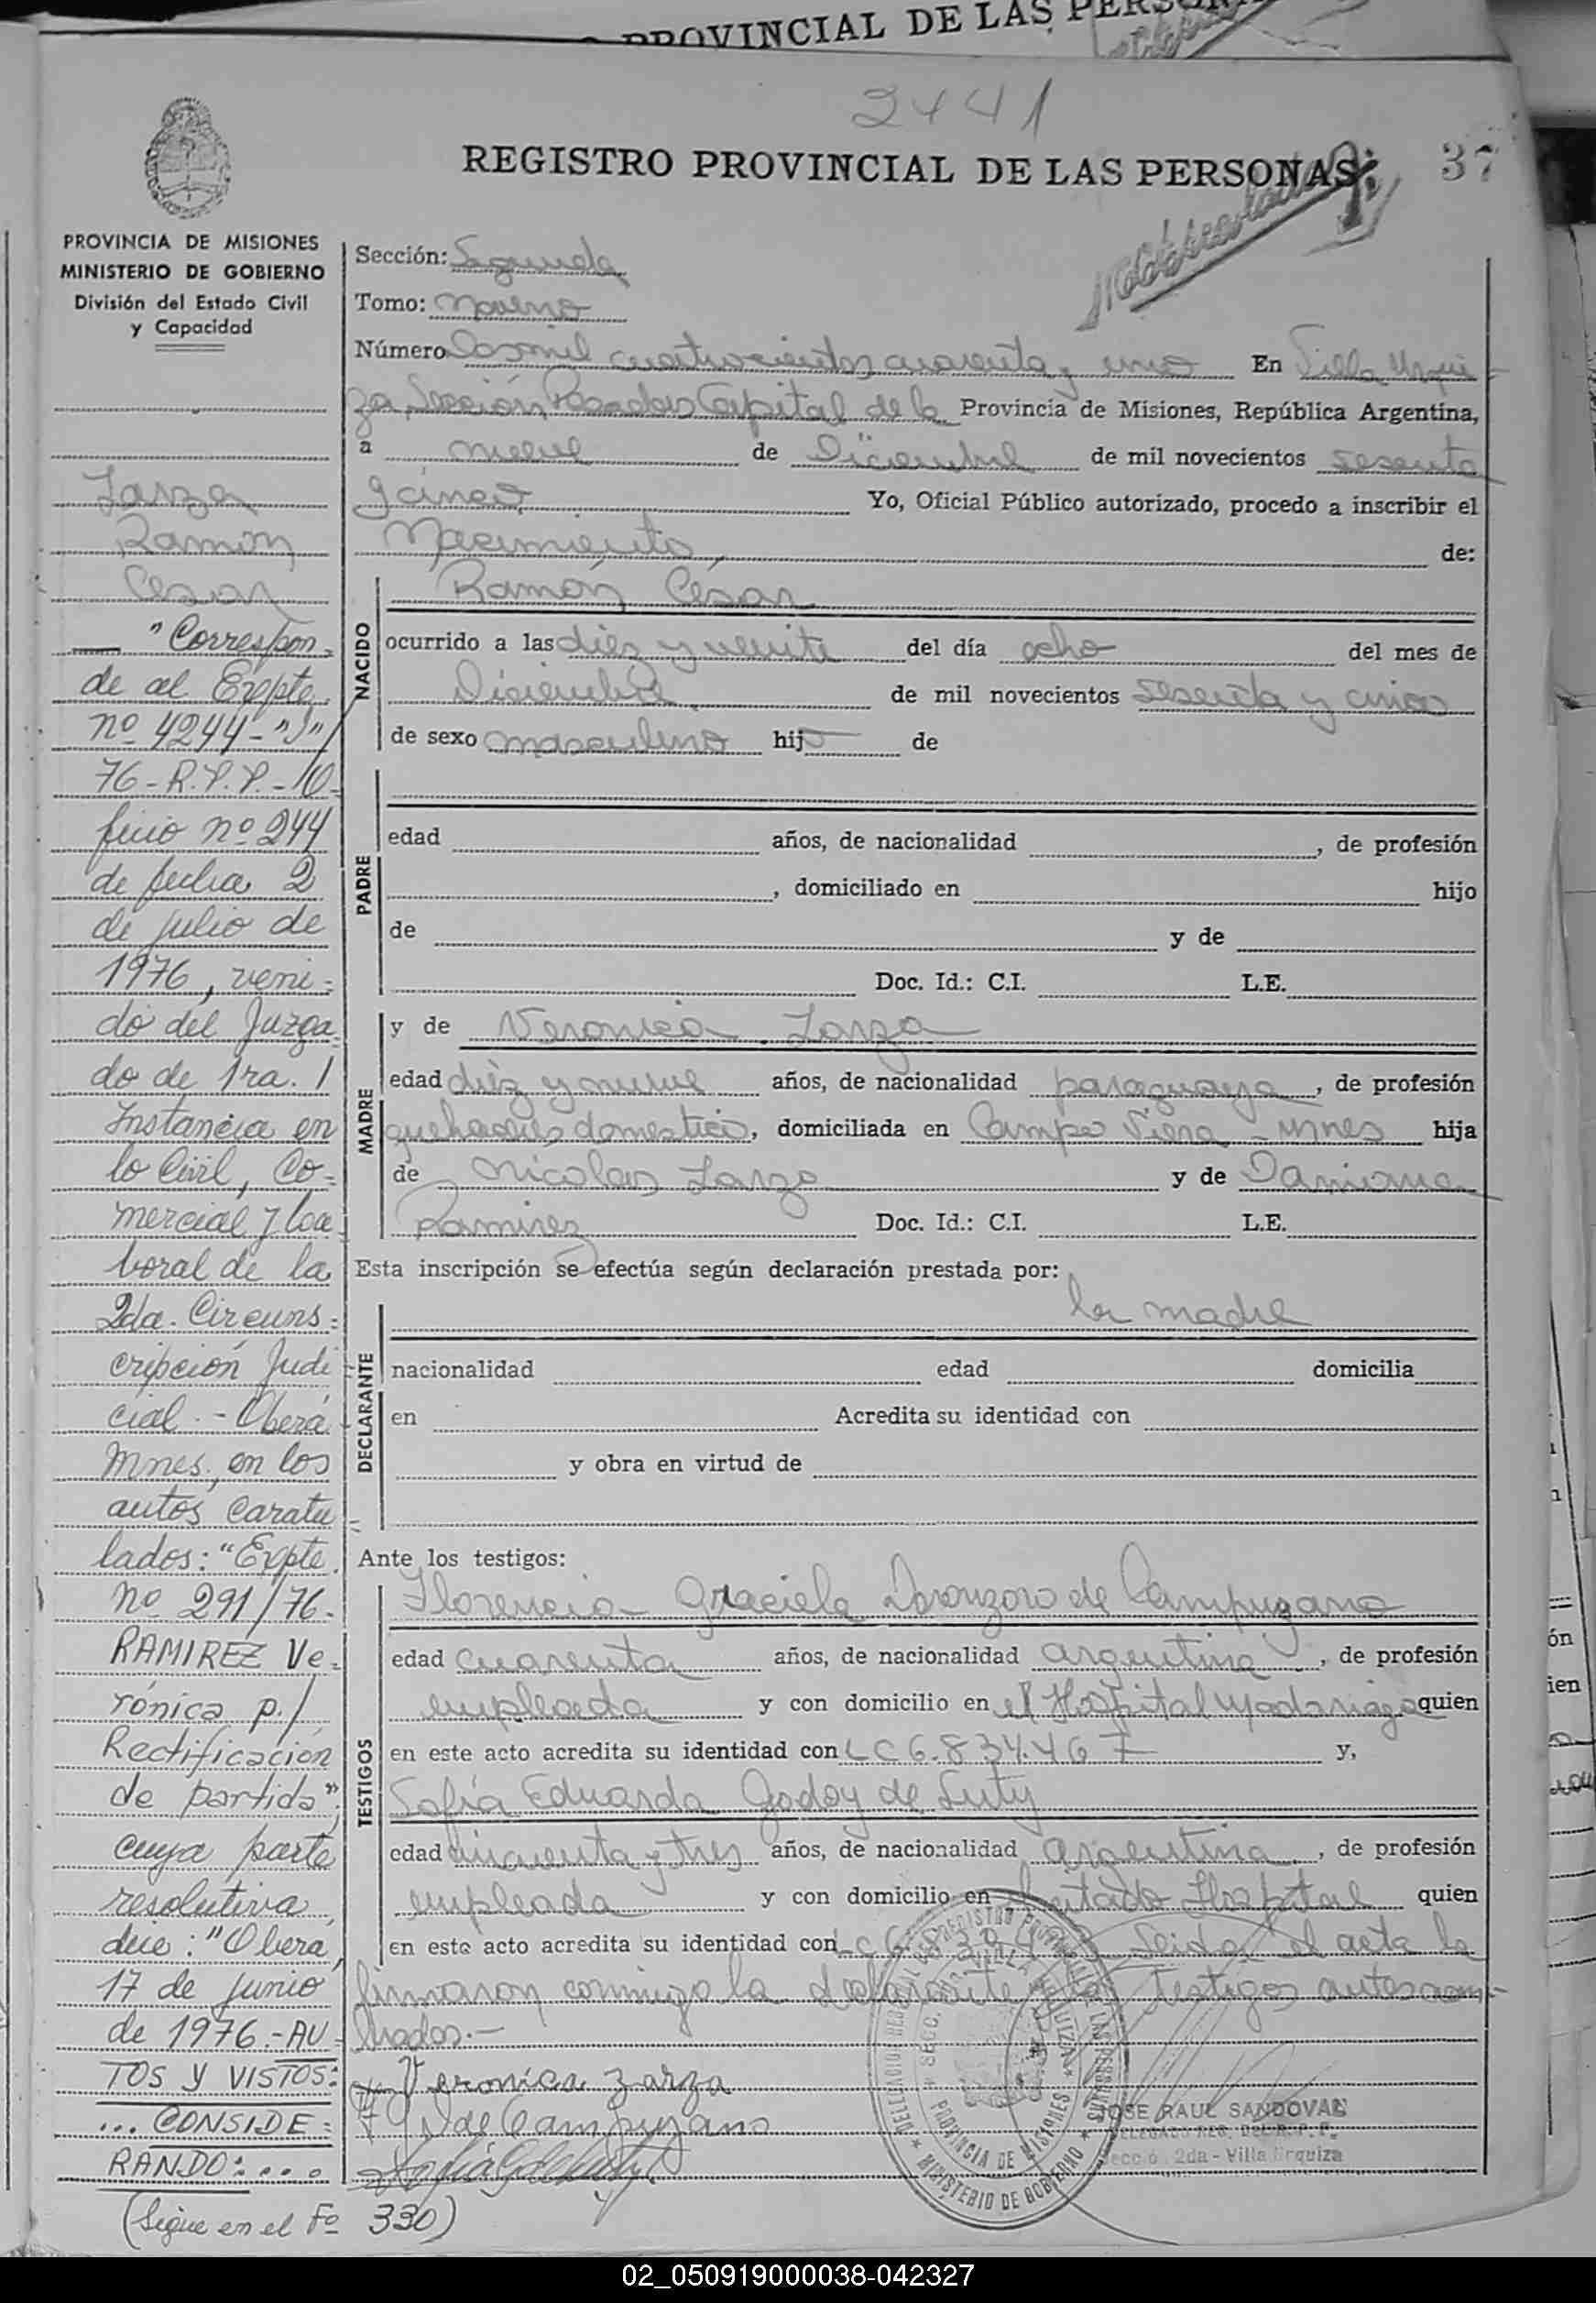 PROVINCIAL DE LAS PERSONA
2441
REGISTRO PROVINCIAL DE LAS PERSONAS
37
PROVINCIA DE MISIONES
MINISTERIO DE GOBIERNO
División del Estado Civil
y Capacidad
Sección: Segunda
Tomo: Noveno
Número Dosmil cuatrocientos cuarenta y uno En Villa Urqui
za, Sección Posadas Capital de la Provincia de Misiones, República Argentina,
a nueve de Diciembre de mil novecientos sesenta
y cinco Yo, Oficial Público autorizado, procedo a inscribir el
Nacimiento de:
NACIDO
Ramón César
ocurrido a las diez y veinte del día ocho del mes de
Diciembre de mil novecientos sesenta y cinco
de sexo masculino hijo de
PADRE
edad años, de nacionalidad , de profesión
, domiciliado en hijo
de y de
Doc. Id.: C.I. L.E.
MADRE
y de Veronica Zarza
edad diez y nueve años, de nacionalidad paraguaya, de profesión
quehaceres domestico, domiciliada en Campo Viera - Mnes hija
de Nicolas Zarza y de Damiana
Ramirez Doc. Id.: C.I. L.E.
Esta inscripción se efectúa según declaración prestada por:
la madre
DECLARANTE
nacionalidad edad domicilia
en Acredita su identidad con
y obra en virtud de
Ante los testigos:
TESTIGOS
Florencia Graciela de Campuzano
edad cuarenta años, de nacionalidad argentina, de profesión
empleada y con domicilio en el Hospital Madariaga quien
en este acto acredita su identidad con LC 6.834.467 y,
Sofía Eduarda Godoy de Luty
edad cincuenta y tres años, de nacionalidad argentina, de profesión
empleada y con domicilio en el citado Hospital quien
en este acto acredita su identidad con LC Leida el acta la
firmaron conmigo la declarante y los testigos antes nom-
brados.-
Veronica Zarza
F G D de Campuzano
JOSE RAUL SANDOVAL
Secció 2da - Villa Urquiza
MINISTERIO DE GOBIERNO
PROVINCIA DE MISIONES
Zarza
Ramón
Cesar
— "Correspon-
de al Expte,
nº 4244-"J"/
76-R.P.P.-10-
ficio nº 244
de fecha 2
de julio de
1976, veni-
do del Juzga
do de 1ra. I
Instancia en
lo Civil, Co-
mercial y La
boral de la
2da. Circuns-
cripción Judi
cial.- Oberá-
Mnes, en los
autos caratu-
lados: "Expte.
nº 291/76.
RAMIREZ Ve-
rónica p./
Rectificación
de partida",
cuya parte
resolutiva,
dice: "Oberá,
17 de junio
de 1976.-AU-
TOS Y VISTOS:
...CONSIDE-
RANDO:....
(Sigue en el Fº 330)
02_050919000038-042327